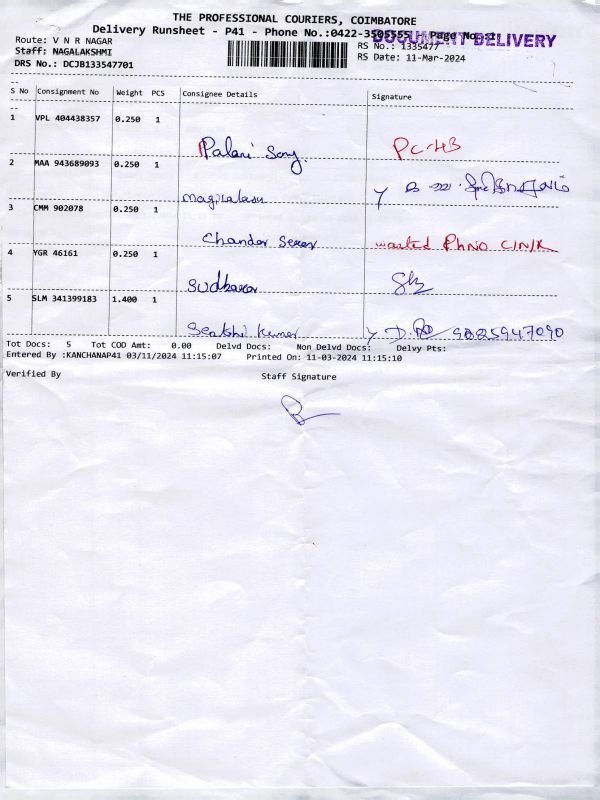 THE PROFESSIONAL COURIERS, COIMBATORE
Delivery Runsheet - P41 - Phone No.:0422-3505555 Page No.:1
DOCUMENT DELIVERY
Route: V N R NAGAR
RS No.: 1335477
Staff: NAGALAKSHMI
RS Date: 11-Mar-2024
DRS No.: DCJB133547701
S No Consignment No Weight PCS Consignee Details Signature
1 VPL 404438357 0.250 1
Palani Samy
2 MAA 943689093 0.250 1
3 CMM 902078 0.250 1
Chander Seker wanted PhNO
4 YGR 46161 0.250 1
Sudhakar
5 SLM 341399183 1.400 1
Senthil Kumar
Tot Docs: 5 Tot COD Amt: 0.00 Delvd Docs: Non Delvd Docs: Delvy Pts:
Entered By :KANCHANAP41 03/11/2024 11:15:07 Printed On: 11-03-2024 11:15:10
Verified By Staff Signature